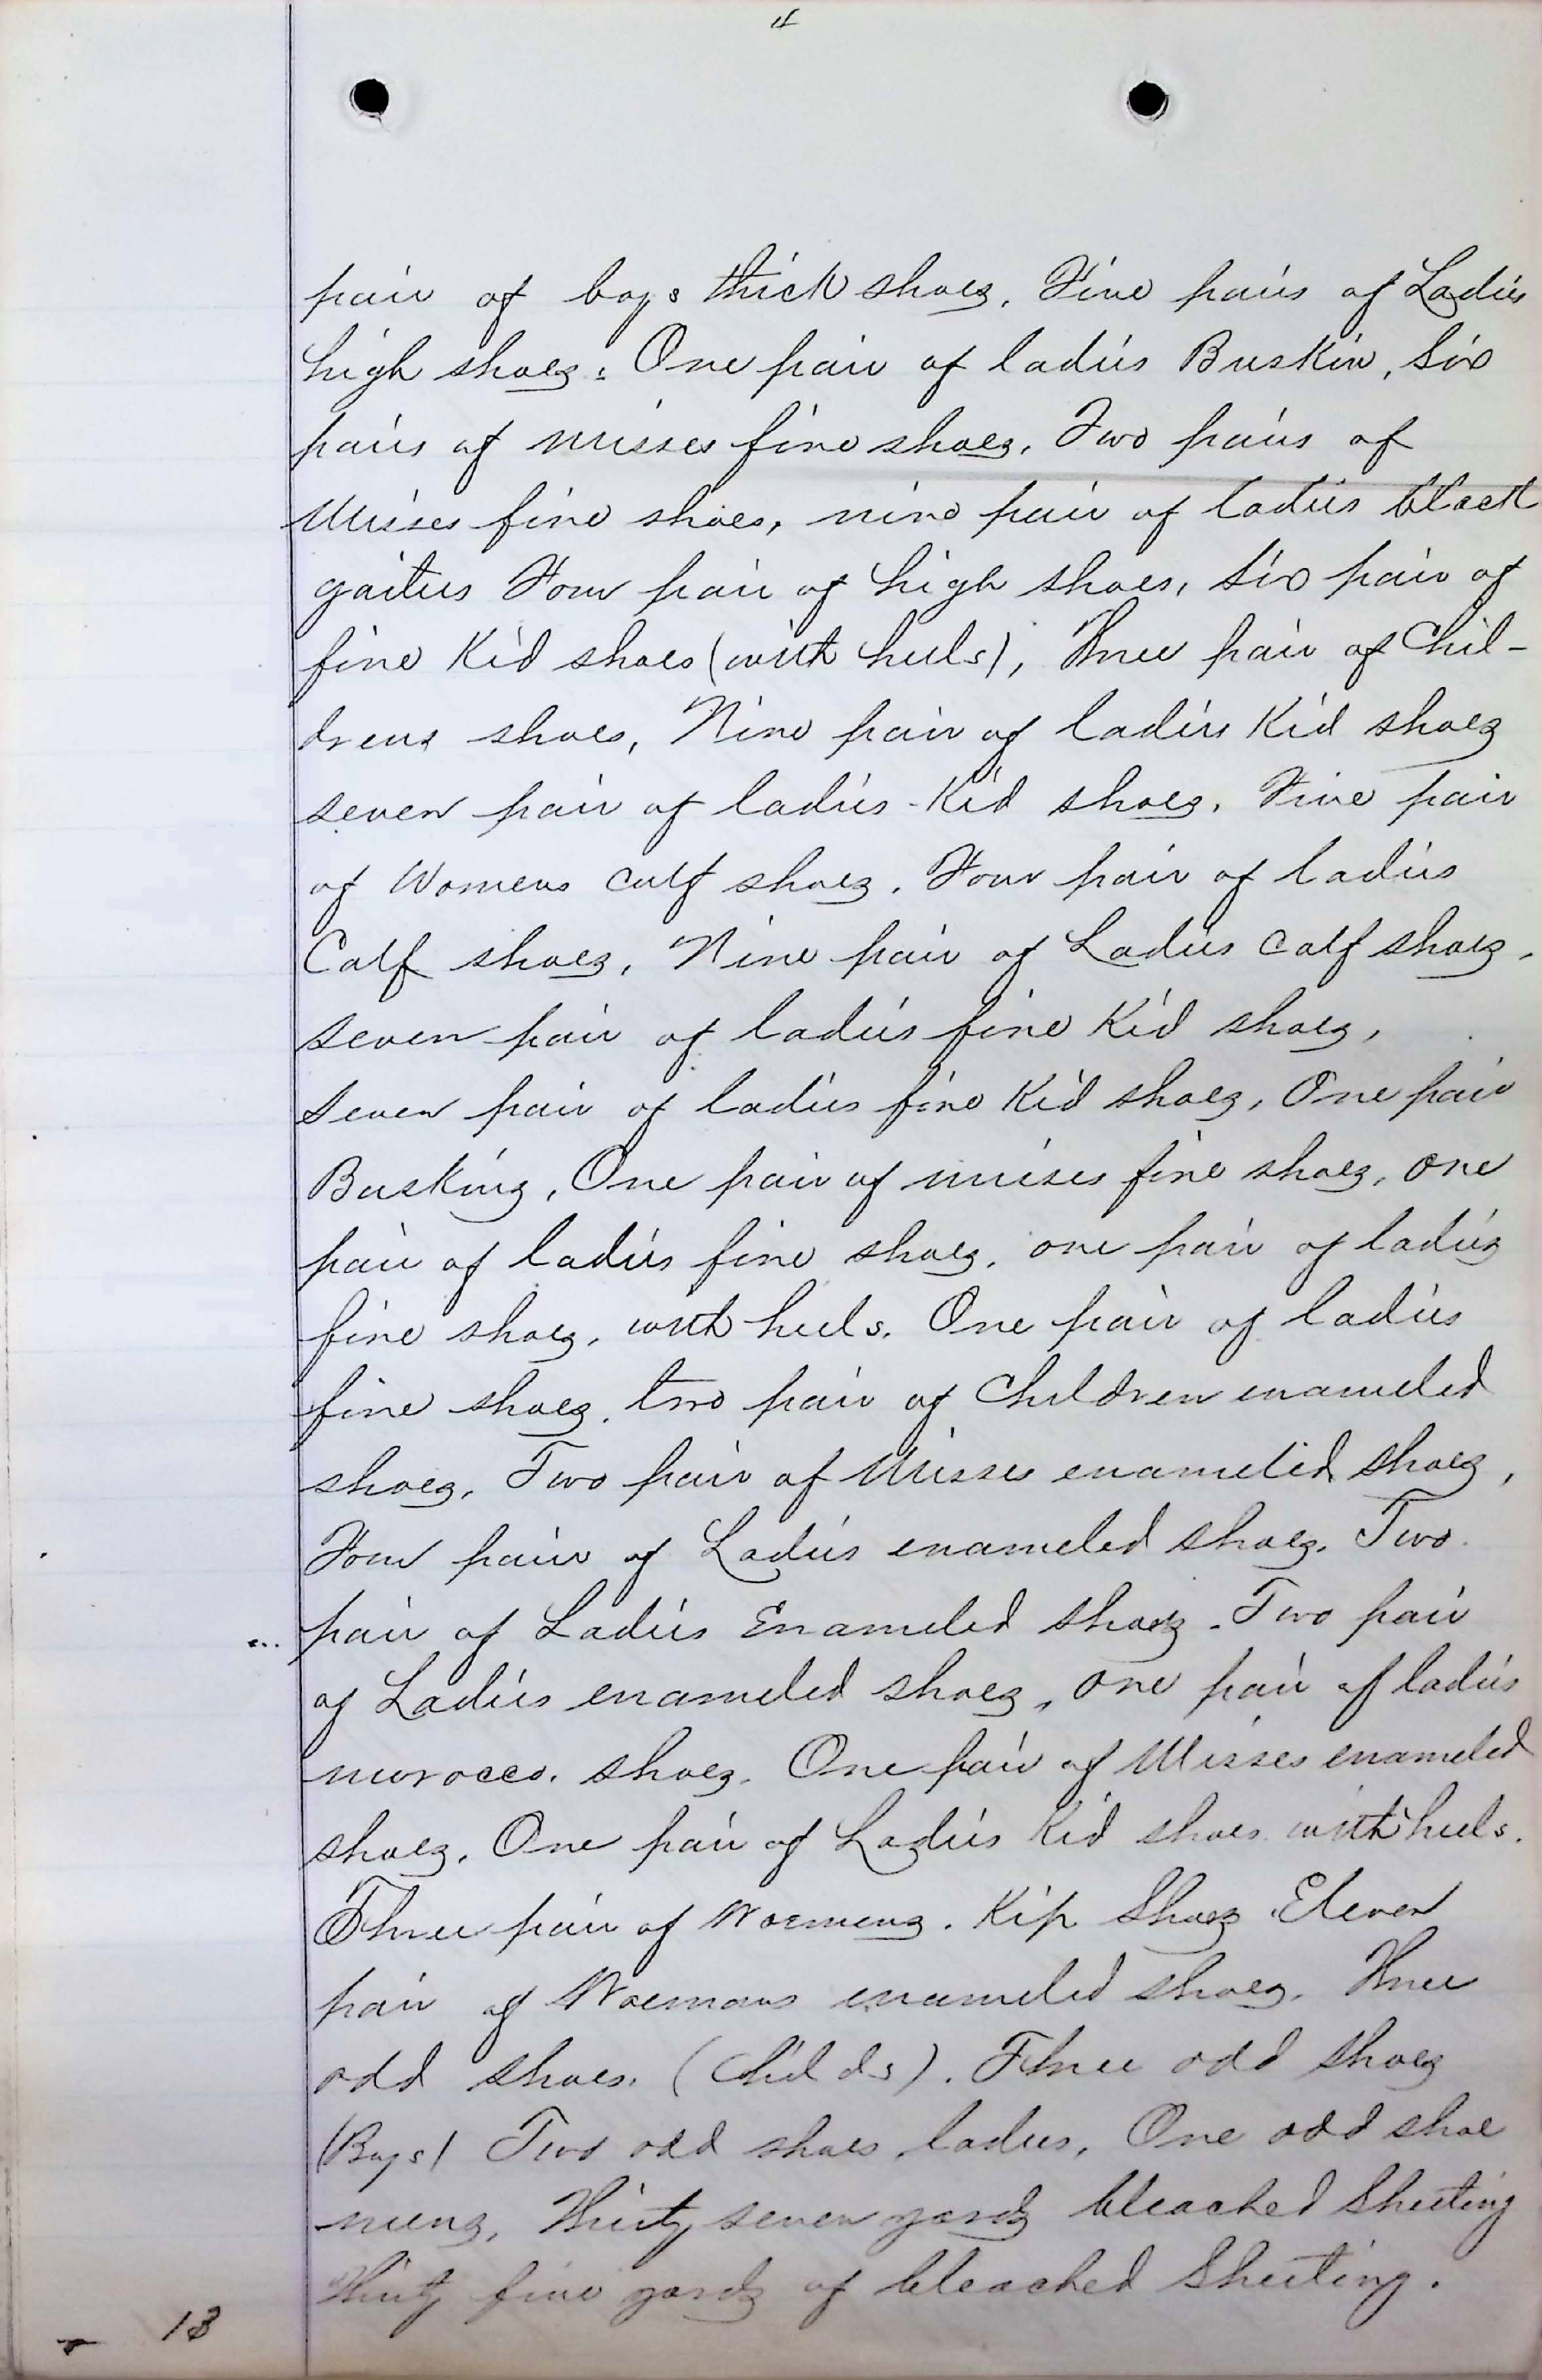 4
pair of boys thick shoes, Five pairs of Ladies
high shoes. One pair of ladies Buskin, Six
pairs of misses fine shoes, Two pairs of
Misses fine shoes, nine pair of ladies black
gaiters Four pair of high shoes, Six pair of
fine Kid shoes (with heels), Three pair of Chil-
drens shoes, Nine pair of ladies Kid shoes
seven pair of ladies Kid shoes, Five pair
of Womens calf shoes, Four pair of ladies
Calf shoes, Nine pair of Ladies calf shoes,
seven pair of ladies fine Kid shoes,
Seven pair of ladies fine Kid shoes, One pair
Buskins, One pair of misses fine shoes, one
pair of ladies fine shoes, one pair of ladies
fine shoes, with heels. One pair of ladies
fine shoes, two pair of Children enameled
shoes, Two pair of Misses enameled shoes,
Four pair of Ladies enameled shoes. Two
pair of Ladies Enameled shoes. Two pair
of Ladies enameled shoes, one pair of ladies
morocco. shoes. One pair of Misses enameled
shoes, One pair of Ladies Kid shoes with heels.
Three pair of Woemens. Kip Shoes. Eleven
pair of Woemans enameled shoes. Three
odd shoes. (Childs). Three odd shoes
(Boys) Two odd shoes ladies, One odd shoe
mens, Thirty seven yards bleached Sheeting
Thirty five yards of bleached Sheeting.
13